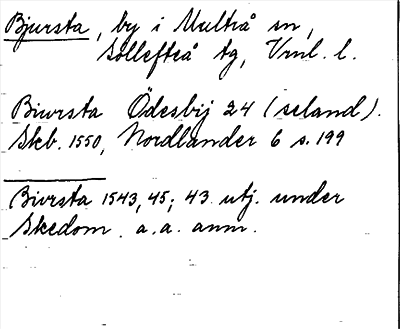 Bjursta, by i Multrå sn,
Sollefteå tg, Vrnl. l.
Biursta Ödesbij 24 (seland).
Skb. 1550, Nordlander 6 s. 199
Biursta 1543, 45; 43 utj. under
Skedom. a.a. anm.